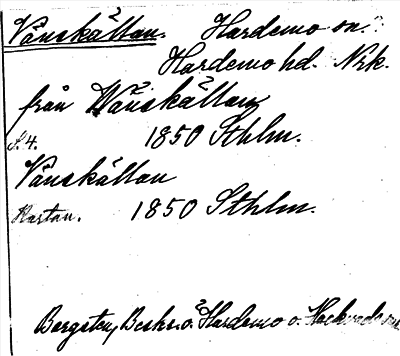 Vånskällan. Hardemo sn.
Hardemo hd. Nrk.
från Wånskällan
S. 4. 1850 Sthlm.
Vånskällan
Kartan. 1850 Sthlm.
Bergsten, Beskr. ö. Hardemo o. Hackvads snr